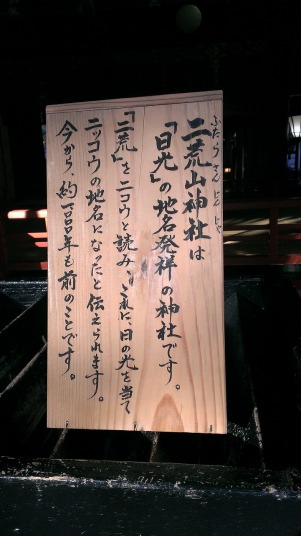 ふたらさんじんじゃ
二荒山神社は
「日光」の地名発祥の神社です。
「二荒」をニコウと読み、これに、日の光を当て
ニッコウの地名になったと伝えられます。
今から、約一二〇〇年も前のことです。